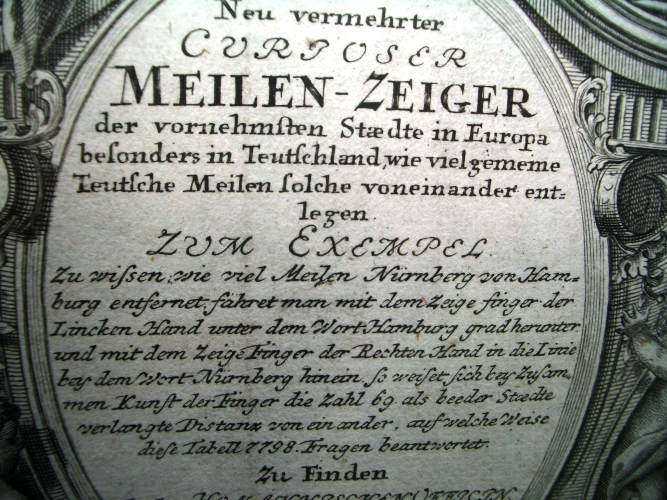 Neu vermehrter
CURIOSER
MEILEN-ZEIGER
der vornehmsten Stædte in Europa
besonders in Teutschland, wie viel gemeine
Teutsche Meilen solche voneinander ent=
legen.
ZUM EXEMPEL.
Zu wissen, wie viel Meilen Nürnberg von Ham=
burg entfernet, fähret man mit dem Zeige finger der
Lincken Hand unter dem Wort Hamburg grad herunter
und mit dem Zeige Finger der Rechten Hand in die Linie
bey dem Wort Nürnberg hinein, so weiset sich bey Zusam=
men Kunft der Finger die Zahl 69. als beeder Stædte
verlangte Distanz von einander, auf welche Weise
diese Tabell 7798. Fragen beantwortet.
Zu Finden